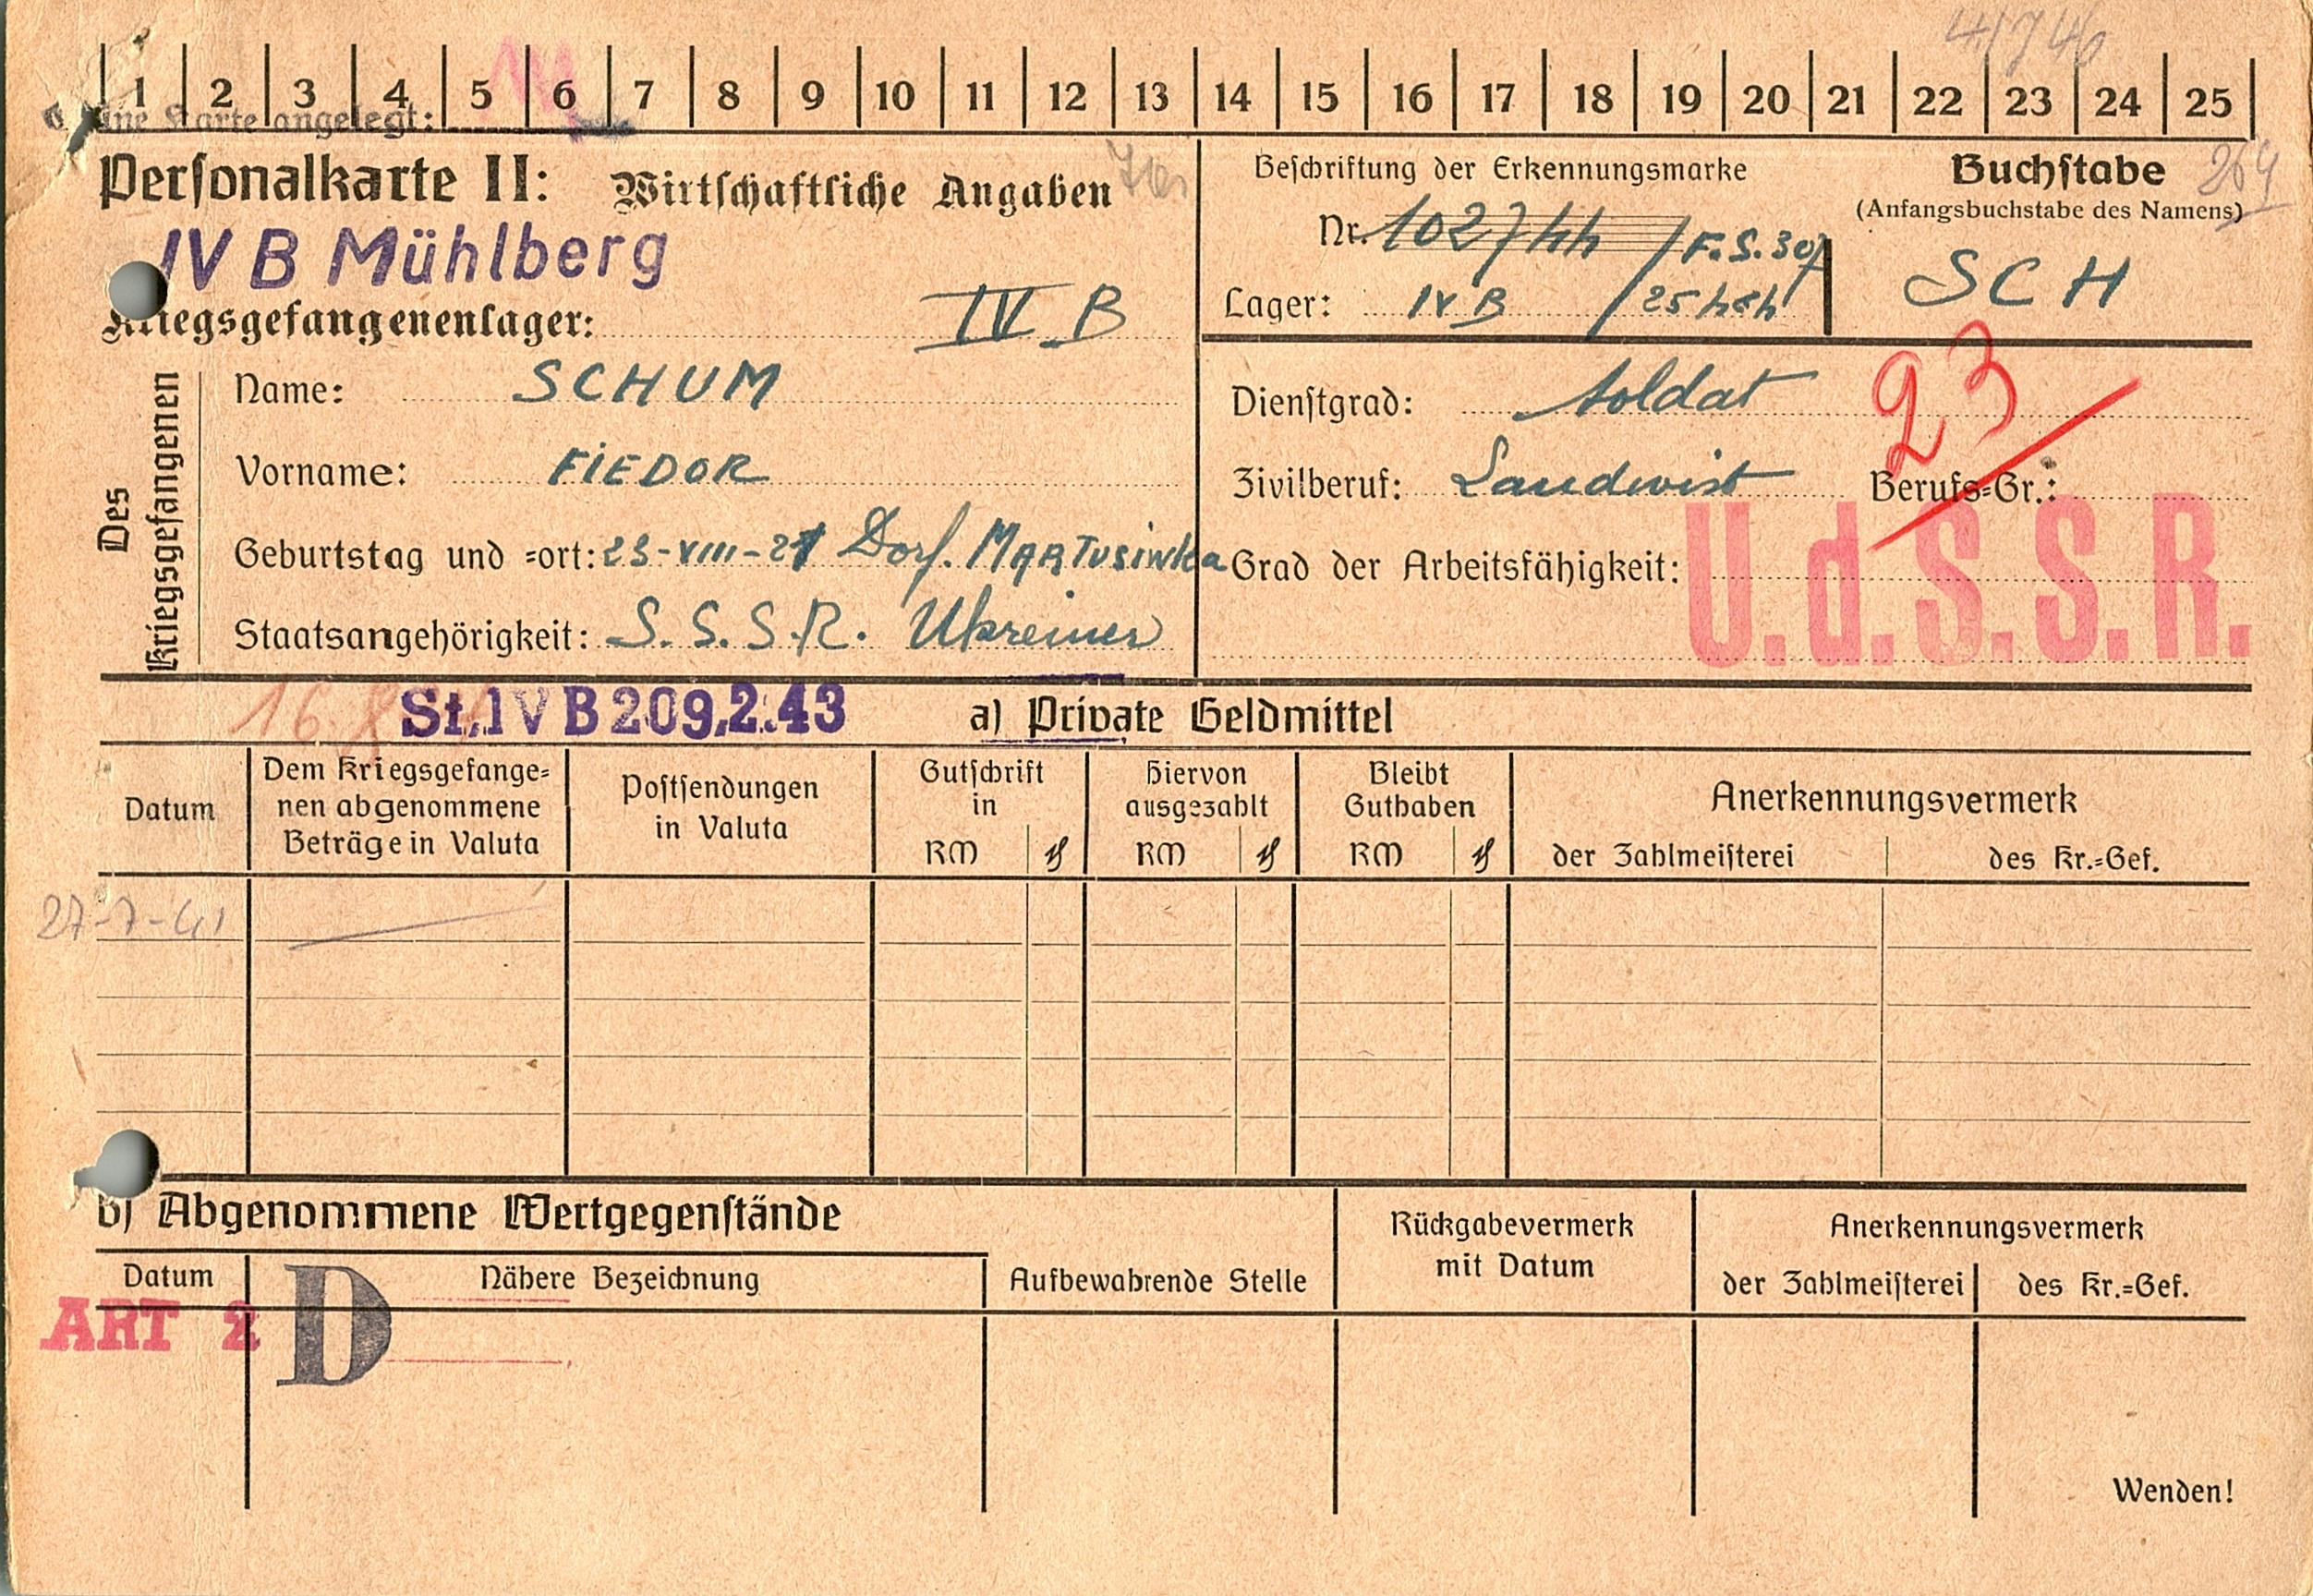 4/746
1 2 3 4 5 6 7 8 9 10 11 12 13 14 15 16 17 18 19 20 21 22 23 24 25
ine Karte angelegt:
Personalkarte II: Wirtschaftliche Angaben
IV B Mühlberg
Kriegsgefangenenlager: IV B
Beschriftung der Erkennungsmarke
Nr. 102744 / F.S. 307
Lager: IV B /
Buchstabe 264
(Anfangsbuchstabe des Namens)
SCH
Des Kriegsgefangenen
Name: SCHUM
Vorname: FIEDOR
Geburtstag und =ort: 23-VIII-21 Dorf. MARTUSIWKa
Staatsangehörigkeit: S.S.S.R. Ukreiner
Dienstgrad: Soldat
23
Zivilberuf: Landwirt Berufs=Gr.:
Grad der Arbeitsfähigkeit:
U.d.S.S.R.
16.
St.IV B 209.2.43 a) Private Geldmittel
Datum
Dem Kriegsgefange=
nen abgenommene
Beträge in Valuta
Postsendungen
in Valuta
Gutschrift
in
RM ₰
Hiervon
ausgezahlt
RM ₰
Bleibt
Guthaben
RM ₰
Anerkennungsvermerk
der Zahlmeisterei des Kr.=Gef.
27-7-41
b) Abgenommene Wertgegenstände
Datum Nähere Bezeichnung
Aufbewahrende Stelle
Rückgabevermerk
mit Datum
Anerkennungsvermerk
der Zahlmeisterei des Kr.=Gef.
ART 2 D
Wenden!